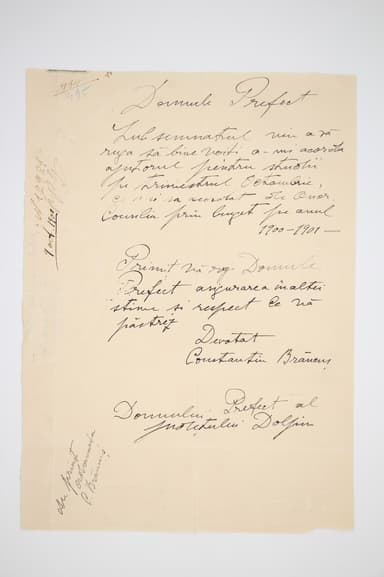 Domnule Prefect
Subsemnatul vin a vă
ruga să bine voiți a-mi acorda
ajutorul pentru studii
pe trimestrul Octombrie,
ce mi s'a acordat de Onor.
consiliu prin buget pe anul
1900-1901 —
Primiți vă rog Domnule
Prefect asigurarea înaltei
stime si respect ce vă
păstrez
Devotat
Constantin Brâncuș
Domnului Prefect al
Județului Doljiu
am primit
C Brâncuș